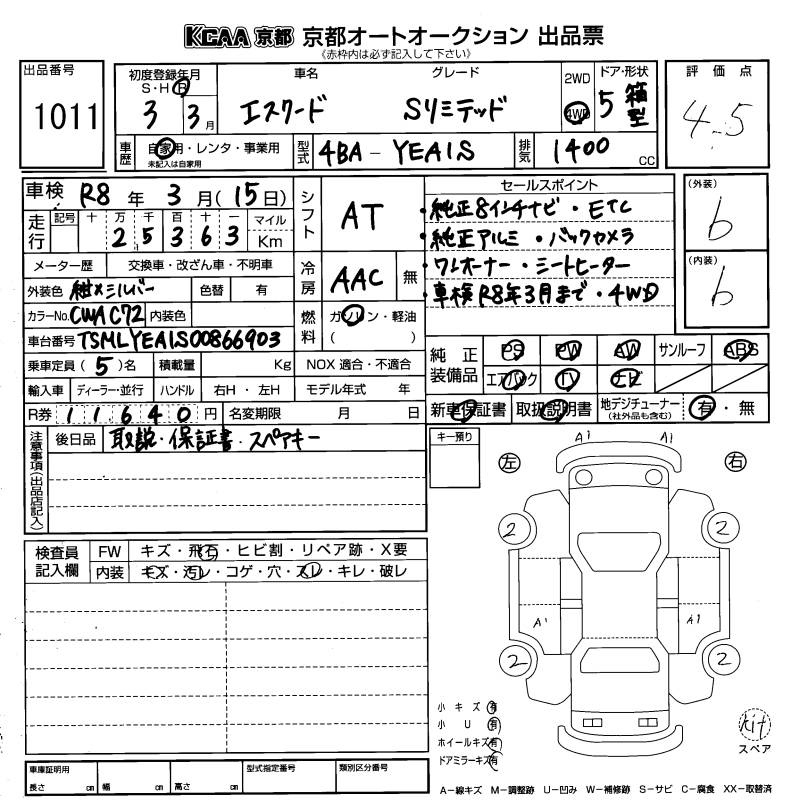 KCAA 京都 京都オートオークション 出品票
《赤枠内は必ず記入して下さい》
出品番号
1011
初度登録年月
S・H・R
3 3月
車名
エスクード
グレード
Sリミテッド
2WD
4WD
ドア・形状
5 箱型
評価点
4.5
車歴
自家用・レンタ・事業用
未記入は自家用
型式
4BA-YEA1S
排気
1400 CC
車検 R8年 3月(15日)
シフト
AT
セールスポイント
・純正8インチナビ・ETC
・純正アルミ・バックカメラ
・ワンオーナー・シートヒーター
・車検R8年3月まで・4WD
(外装)
b
(内装)
b
走行
記号 十 万 千 百 十 一 マイル
2 5 3 6 3 Km
メーター歴 交換車・改ざん車・不明車
冷房
AAC 無
外装色 紺メ/シルバー 色替 有
カラーNo. CWA C72 内装色
燃料
ガソリン・軽油
( )
車台番号 TSMLYEA1S00866903
乗車定員(5)名 積載量 Kg NOX 適合・不適合
純正装備品
PS PW AW サンルーフ ABS
エアバック TV ナビ
輸入車 ディーラー・並行 ハンドル 右H・左H モデル年式 年
R券 11640円 名変期限 月 日
新車保証書 取扱説明書 地デジチューナー(社外品も含む) 有・無
注意事項(出品店記入)
後日品 取説・保証書・スペアキー
キー預り
左 右
A1 A1
2 2
A1 A1
2 2
検査員記入欄
FW キズ・飛石・ヒビ割・リペア跡・X要
内装 キズ・汚レ・コゲ・穴・スレ・キレ・破レ
小キズ 有
小U 有
ホイールキズ 有
ドアミラーキズ 有
kit
スペア
車庫証明用
長さ cm 幅 cm 高さ cm
型式指定番号
類別区分番号
A-線キズ M-調整跡 U-凹み W-補修跡 S-サビ C-腐食 XX-取替済